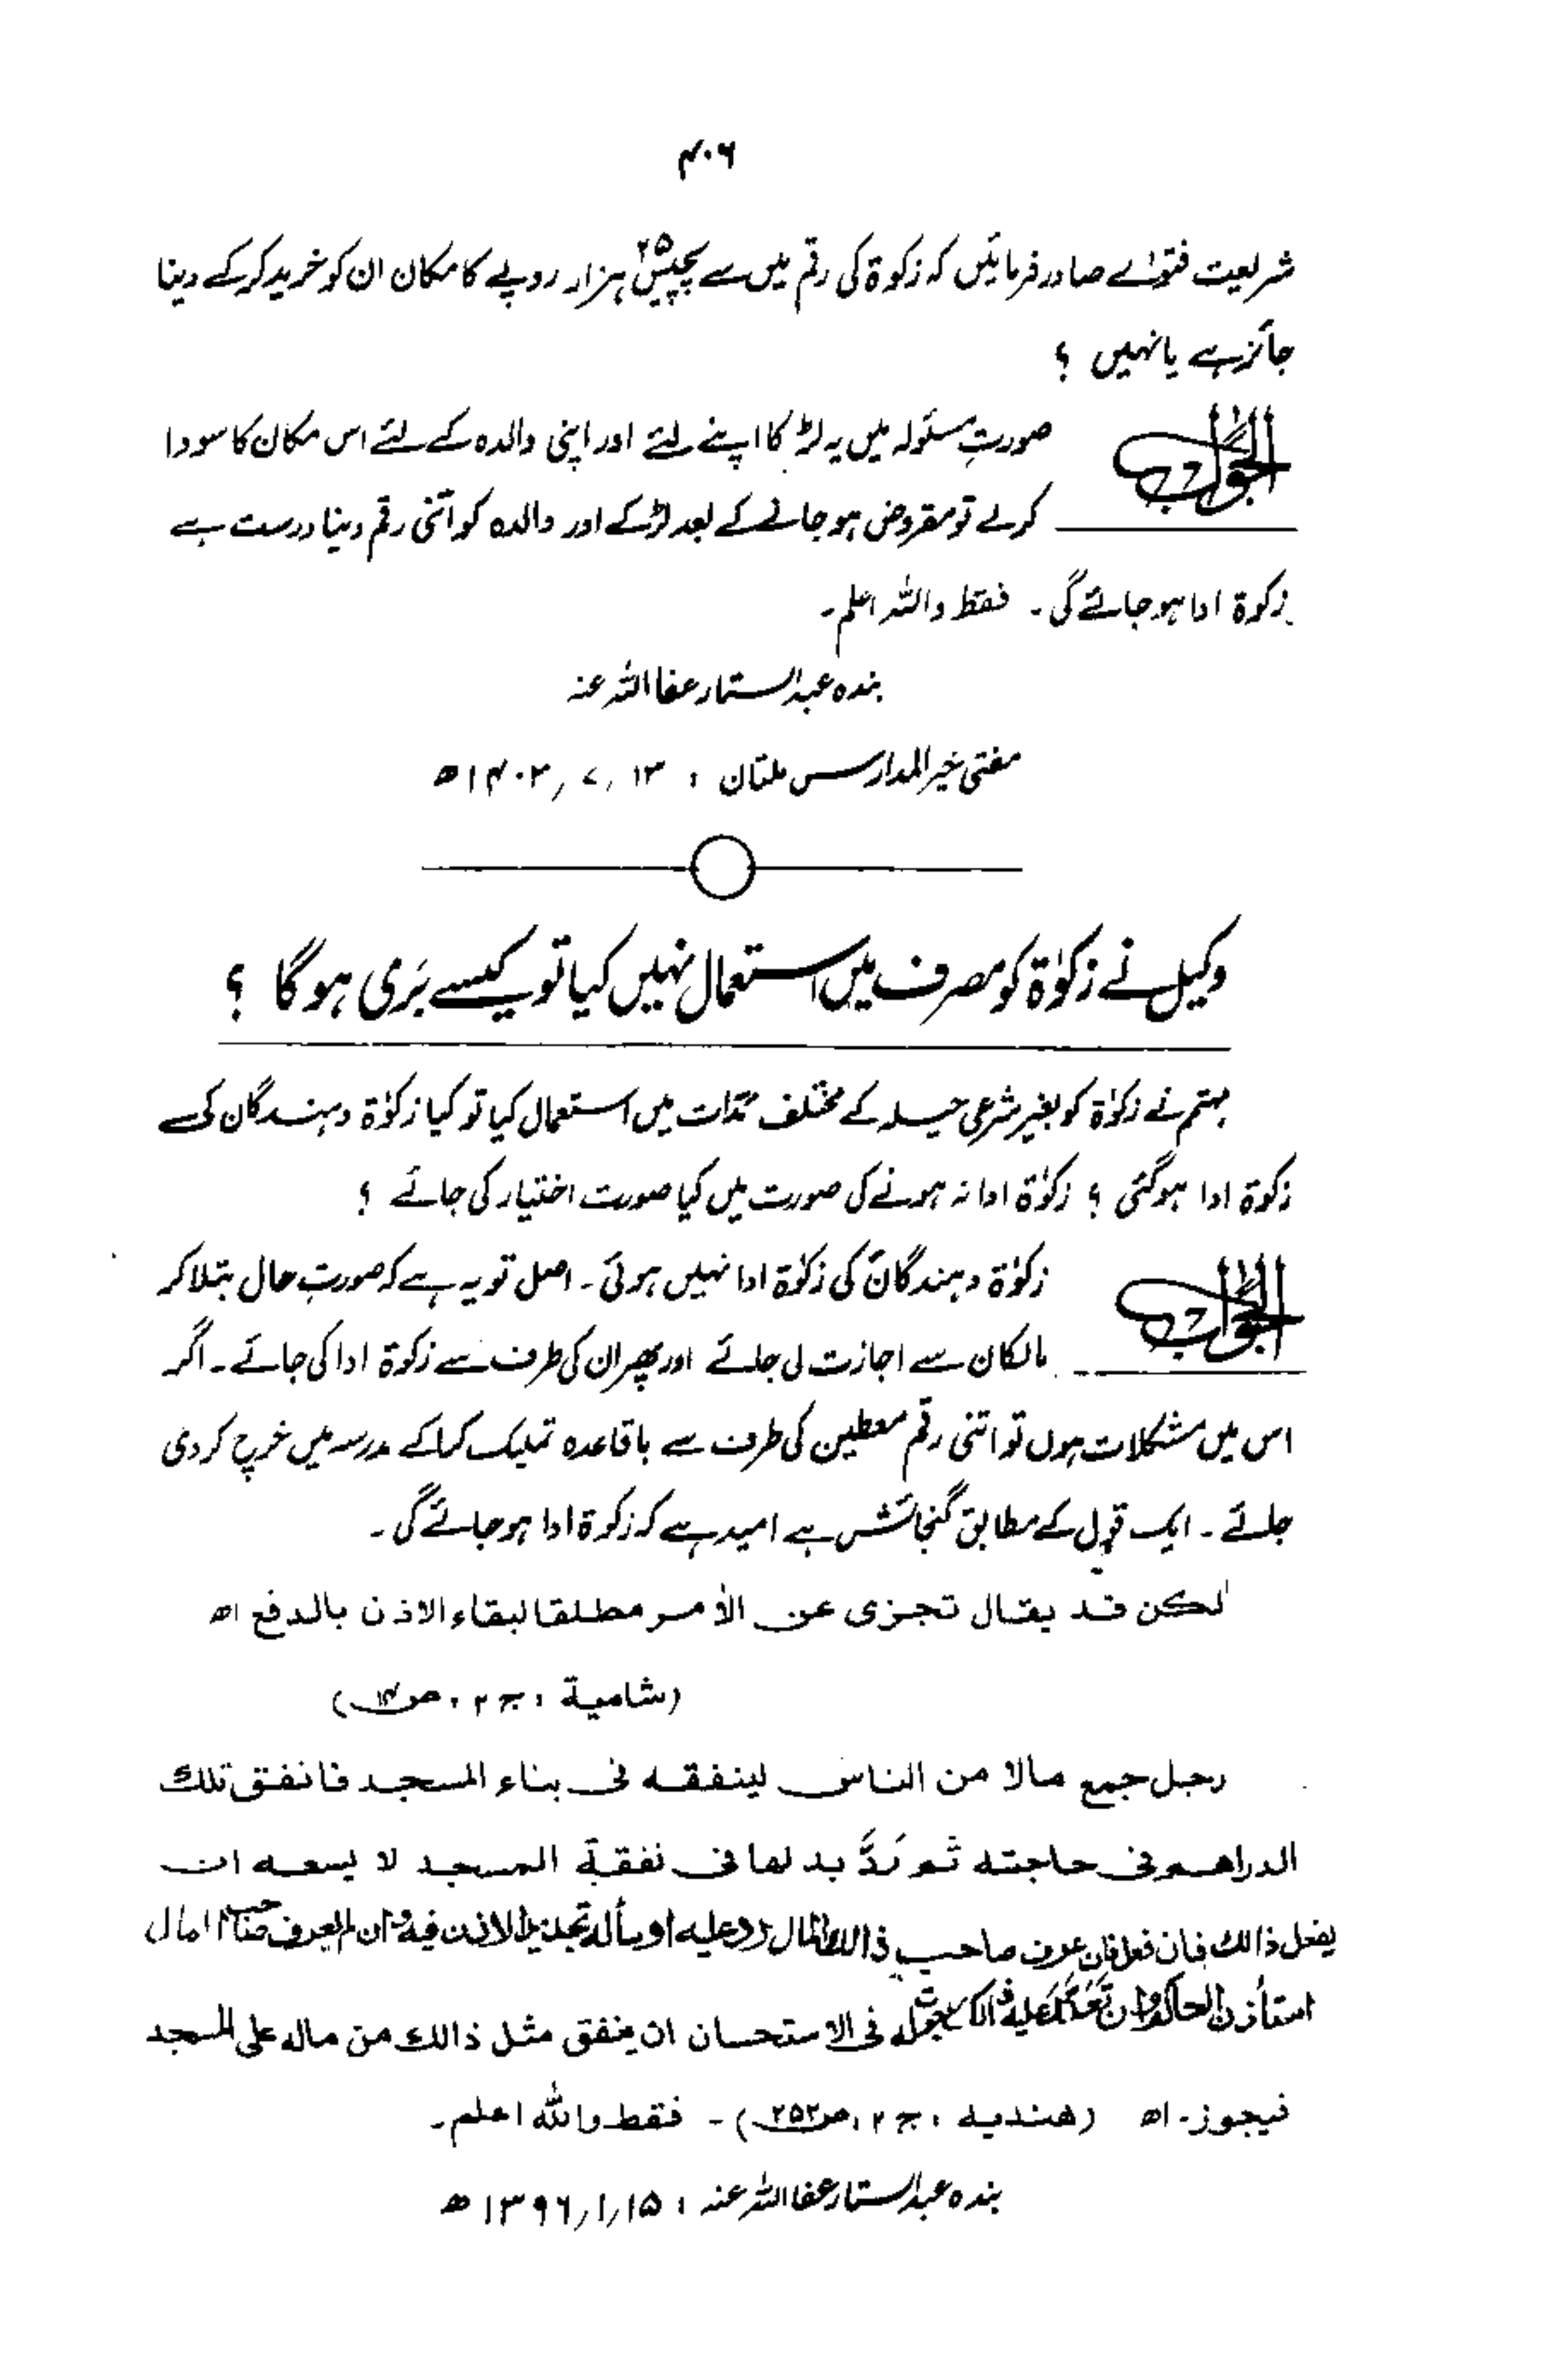 ۴۰۶
شریعت فتوٰے صادر فرمائیں کہ زکوۃ کی رقم میں سے پچیس۲۵ ہزار روپے کا مکان ان کو خرید کر کے دینا
جائز ہے یا نہیں ؟
الجواب صورتِ مسئولہ میں یہ لڑکا اپنے لئے اور اپنی والدہ کے لئے اس مکان کا سودا
کرلے تو مقروض ہو جانے کے بعد لڑکے اور والدہ کو اتنی رقم دینا درست ہے
زکوۃ ادا ہو جائے گی ۔ فقط واللہ اعلم ۔
بندہ عبدالستار عفا اللہ عنہ
مفتی خیر المدارس ملتان ، ۱۳ ؍ ۷ ؍ ۱۴۰۲ھ
وکیل نے زکوٰۃ کو مصرف میں استعمال نہیں کیا تو کیسے بَری ہوگا ؟
مہتمم نے زکوٰۃ کو بغیر شرعی حیلہ کے مختلف مدّات میں استعمال کیا تو کیا زکوٰۃ دہندگان کی
زکوۃ ادا ہوگئی ؟ زکوٰۃ ادا نہ ہونے کی صورت میں کیا صورت اختیار کی جائے ؟
الجواب زکوٰۃ دہندگان کی زکوٰۃ ادا نہیں ہوئی ۔ اصل تو یہ ہے کہ صورتِ حال بتلا کر
مالکان سے اجازت لی جائے اور پھر ان کی طرف سے زکوۃ ادا کی جائے ۔ اگر
اس میں مشکلات ہوں تو اتنی رقم معطین کی طرف سے باقاعدہ تملیک کرا کے مدرسہ میں خرچ کر دی
جائے ۔ ایک قول کے مطابق گنجائش ہے امید ہے کہ زکوۃ ادا ہو جائے گی ۔
لکن قد یقال تجزی عن الأمر مطلقا لبقاء الاذن بالدفع اھ
(شامیة ، ج ۲ ، ص)
رجل جمع مالا من الناس لینفقه فی بناء المسجد فانفق تلك
الدراهم فی حاجته ثم رَدَّ بدلها فی نفقة المسجد لا یسعه ان
یفعل ذالك فان فعل فان عرف صاحب ذالك المال رد علیه او سأله تجدید الاذن فیه وان لم یعرف صاحب المال
استأذن الحاکم وان تعذر علیه ذالك فی الاستحسان ان ینفق مثل ذالك من ماله علی المسجد
فیجوز ۔ اھ (هندیه ، ج ۲ ، ص۲۵۲) ۔ فقط واللہ اعلم ۔
بندہ عبدالستار عفا اللہ عنہ ، ۱۵؍۱؍۱۳۹۶ھ